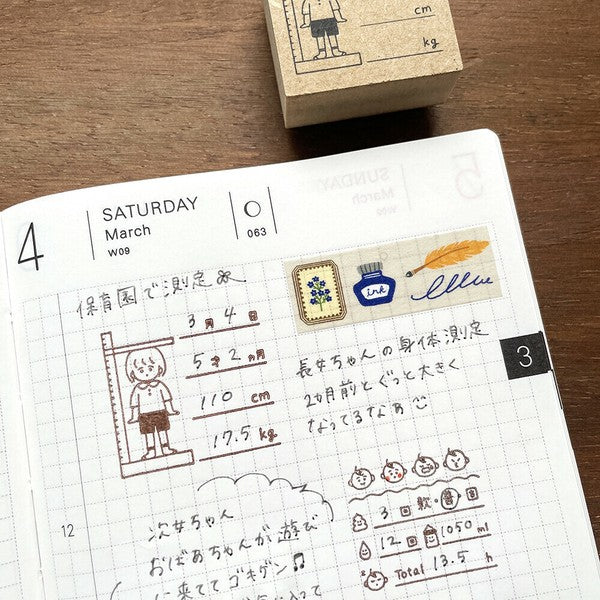 cm
kg
4
SATURDAY
March
W09
063
5
SUNDAY
March
W09
保育園で測定
3月 4日
5才 2ヵ月
110 cm
17.5 kg
ink
長女ちゃんの身体測定
2ヵ月前とぐっと大きく
なってるなぁ
3
12
次女ちゃん
おばあちゃんが遊び
に来ててゴキゲン♫
3回 軟・普・固
12回 1050 ml
Total 13.5 h